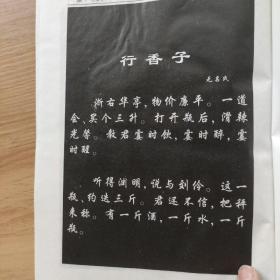 行香子
无名氏
浙右华亭，物价廉平。一道
会、买个三升。打开瓶后，滑辣
光馨。教君霎时饮，霎时醉，霎
时醒。
听得渊明，说与刘伶。这一
瓶、约迭三斤。君还不信，把秤
来称。有一斤酒，一斤水，一斤
瓶。